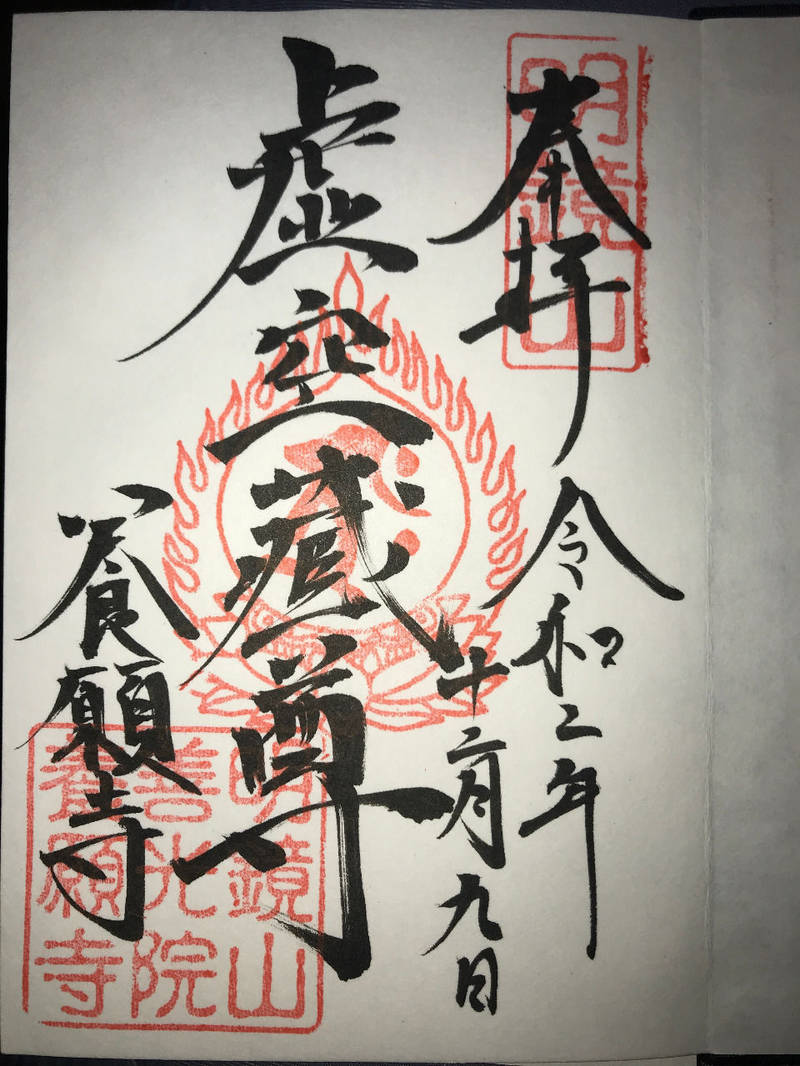 奉拝
明鏡山
令和二年
十二月九日
虚空蔵尊
養願寺
明鏡山
善光院
養願寺